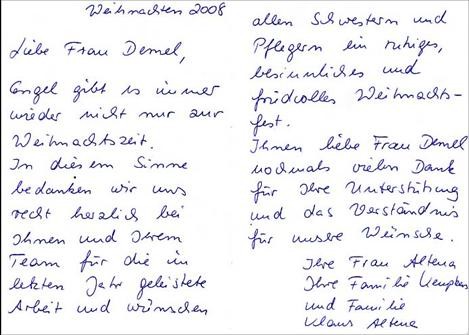 Weihnachten 2008
Liebe Frau Demel,
Engel gibt es immer
wieder nicht nur zur
Weihnachtszeit.
In diesem Sinne
bedanken wir uns
recht herzlich bei
Ihnen und Ihrem
Team für die im
letzten Jahr geleistete
Arbeit und wünschen
allen Schwestern und
Pflegern ein ruhiges,
besinnliches und
friedvolles Weihnachts-
fest.
Ihnen liebe Frau Demel
nochmals vielen Dank
für Ihre Unterstützung
und das Verständnis
für unsere Wünsche.
Ihre Frau Altena
Ihre Familie
und Familie
Klaus Altena